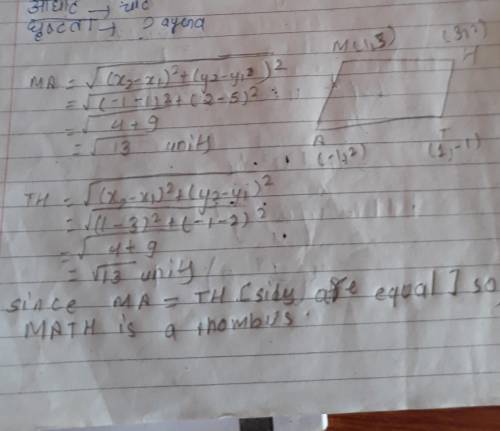 MA = √(x₂-x₁)²+(y₂-y₁)²
= √(-1-1)²+(2-5)²
= √4+9
= √13 units
M(1,5) (3,2)
H
A T
(-1,2) (1,-1)
TH = √(x₂-x₁)²+(y₂-y₁)²
= √(1-3)²+(-1-2)²
= √4+9
= √13 units
since MA = TH [sides are equal] so
MATH is a rhombus.